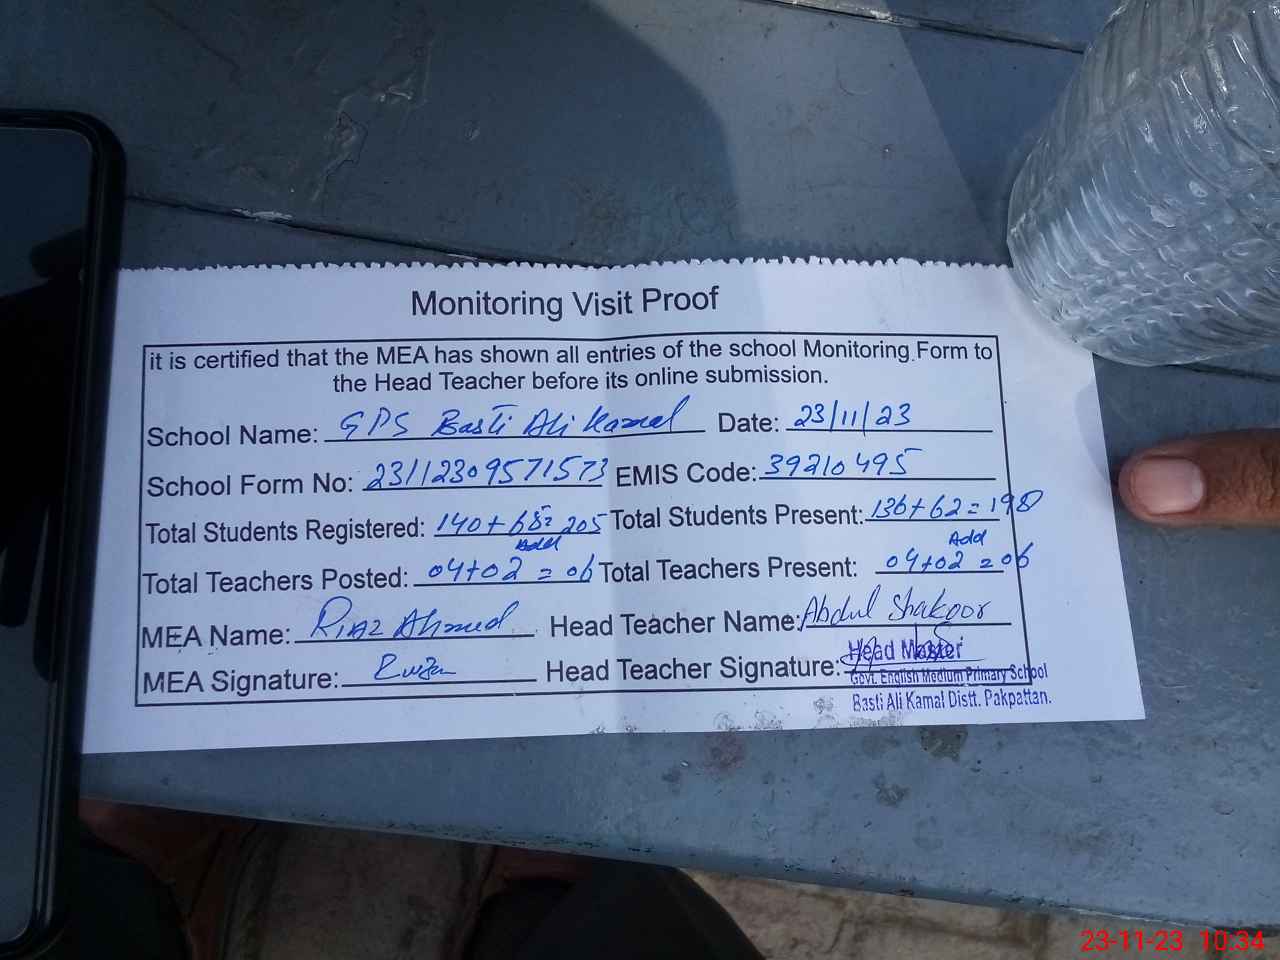 Monitoring Visit Proof
it is certified that the MEA has shown all entries of the school Monitoring Form to
the Head Teacher before its online submission.
School Name: GPS Basti Ali Kamal Date: 23/11/23
School Form No: 23112309571573 EMIS Code: 39210495
Total Students Registered: 140+65=205 Total Students Present: 136+62=198
Add Add
Total Teachers Posted: 04+02=06 Total Teachers Present: 04+02=06
MEA Name: Riaz Ahmed Head Teacher Name: Abdul Shakoor
MEA Signature: Head Teacher Signature:
Head Master
Govt. English Medium Primary School
Basti Ali Kamal Distt. Pakpattan.
23-11-23 10:34